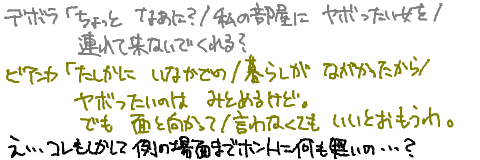 デボラ「ちょっと なあに?/私の部屋に ヤボったい女を/
連れて来ないでくれる?
ビアンカ「たしかに いなかでの/暮らしが ながかったから/
ヤボったいのは みとめるけど。
でも 面と向かって/言わなくても いいとおもうわ。
え…コレもしかして例の場面までホントに何も無いの…?